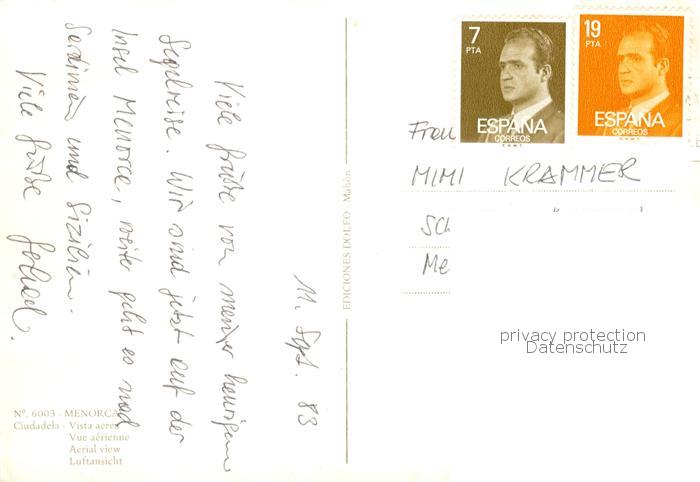 11. Sept. 83
Viele Grüße von meiner heurigen
Segelreise. Wir sind jetzt auf der
Insel Menorca, weiter geht es nach
Sardinien und Sizilien.
Viele Grüße
7
PTA
ESPAÑA
CORREOS
F.N.M.T.
19
PTA
ESPAÑA
CORREOS
F.N.M.T.
Frau
MIMI KRAMMER
SCH
Me
EDICIONES DOLFO - Mahón
Nº. 6003 - MENORCA
Ciudadela - Vista aerea
Vue aérienne
Aerial view
Luftansicht
privacy protection
Datenschutz